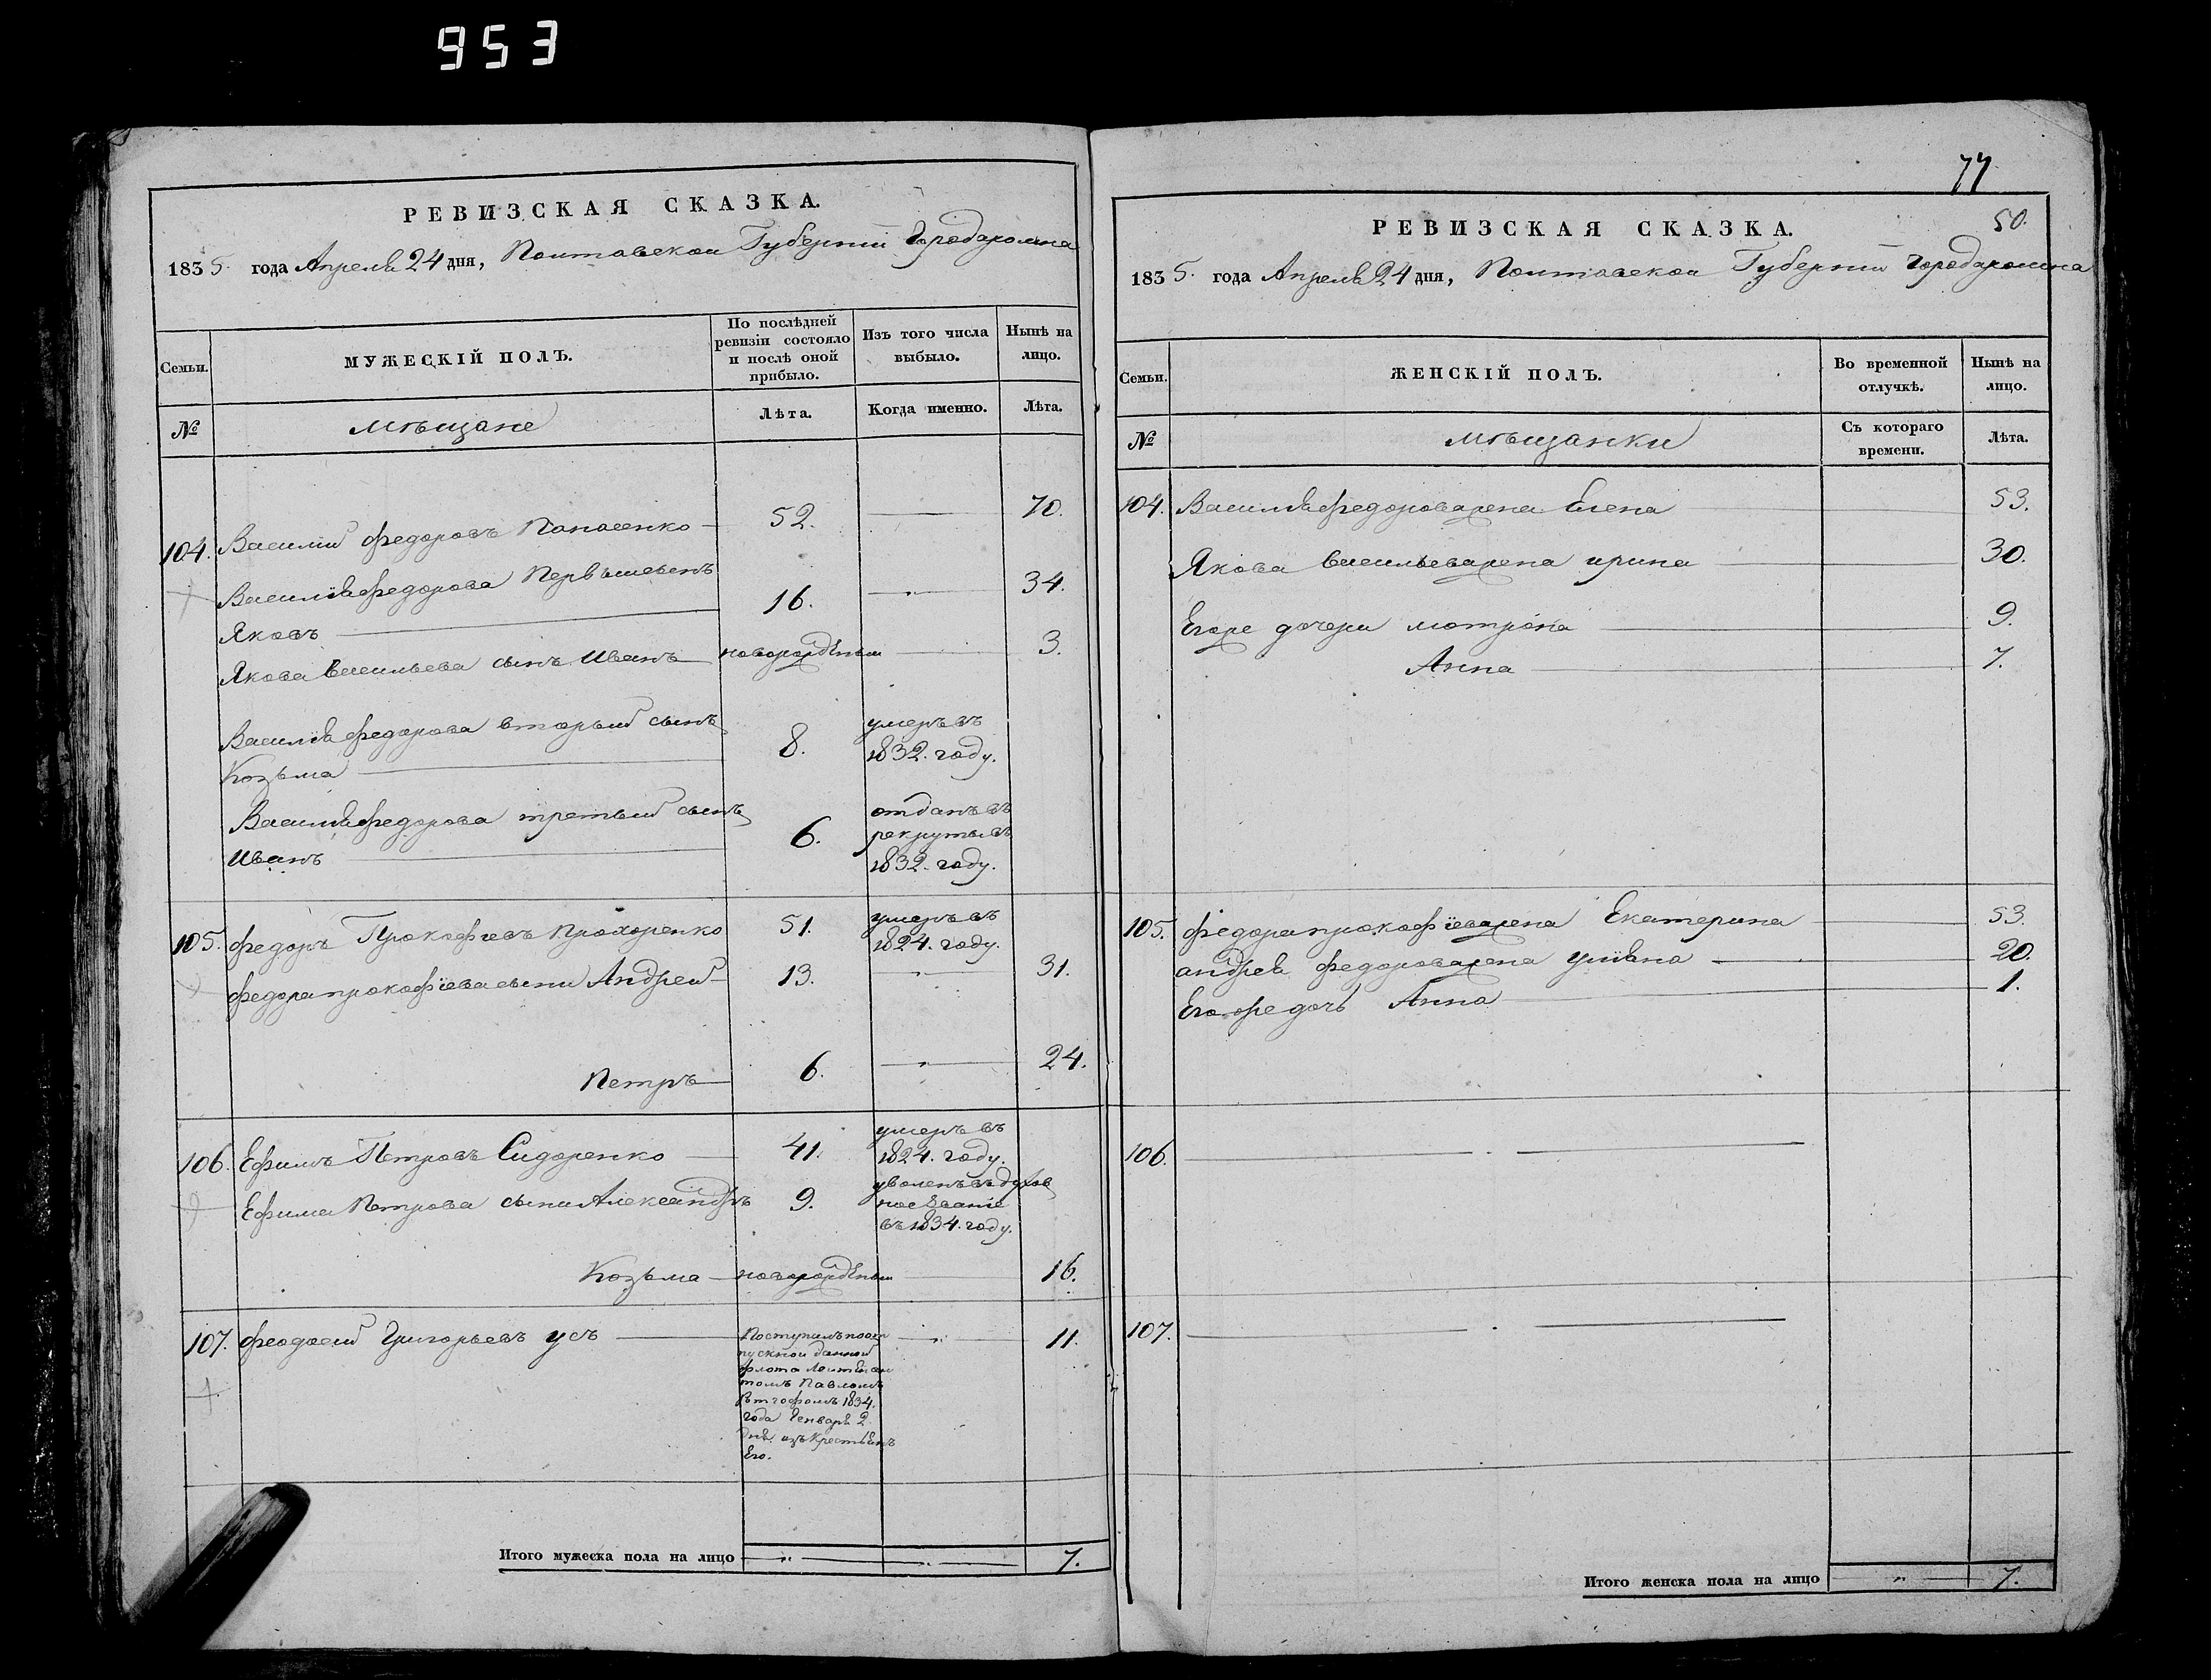 953
РЕВИЗСКАЯ СКАЗКА.
1835. года Апреля 24 дня, Полтавской Губернии Города
Семьи.
МУЖЕСКІЙ ПОЛЪ.
По послѣдней ревизіи состояло и послѣ оной прибыло.
Изъ того числа выбыло.
Нынѣ на лицо.
№
мѣщане
Лѣта.
Когда именно.
Лѣта.
104. Василий Федоровъ Панасенко 52. 70.
Василія Федорова Первый сынъ
Яковъ 16. 34.
Якова Васильева сынъ Иванъ новорожденъ 3.
Василія Федорова вторый сынъ
Козьма 8. умеръ въ 1832. году.
Василія Федорова третый сынъ
Иванъ 6. отданъ въ рекруты въ 1832. году.
105. Федоръ Прокофіевъ Прохоренко 51. умеръ въ 1824. году.
Федора Прокофіева сыни Андрей 13. 31.
Петръ 6. 24.
106. Ефимъ Петровъ Сидоренко 41. умеръ въ 1824. году.
Ефима Петрова сыни Александръ 9. уволенъ въ духовное званіе въ 1834. году.
Козьма новорожденъ 16.
107. Феодосій Григорьевъ Усъ 11.
Поступилъ по от
пускной данной
флота Лейтенан
томъ Павломъ
1834.
года Генваря 2
дня. изъ Крестьянъ
Его.
Итого мужеска пола на лицо 7.
77
50.
РЕВИЗСКАЯ СКАЗКА.
1835. года Апреля 24 дня, Полтавской Губернии Города
Семьи.
ЖЕНСКІЙ ПОЛЪ.
Во временной отлучкѣ.
Нынѣ на лицо.
№
мѣщанки
Съ котораго времени.
Лѣта.
104. Василія Федорова жена Елена 53.
Якова Васильева жена Ирина 30.
Егоже дочери Мотрона 9.
Анна 7.
105. Федора Прокофіева жена Екатерина 53.
Андрея Федорова жена Уліяна 20.
Егоже дочь Анна 1.
106.
107.
Итого женска пола на лицо 7.